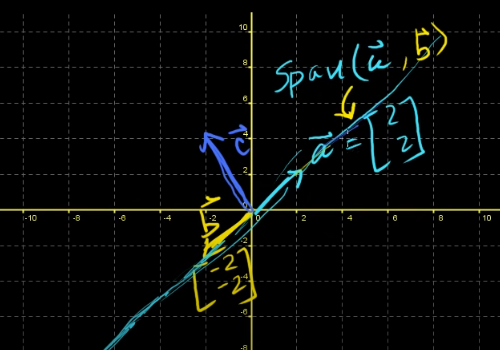 Span(a⃗, b⃗)
c⃗
a⃗ = [2 2]
b⃗
[-2 -2]
10
8
6
4
2
0
-2
-4
-6
-10 -8 -6 -4 -2 0 2 4 6 8 10